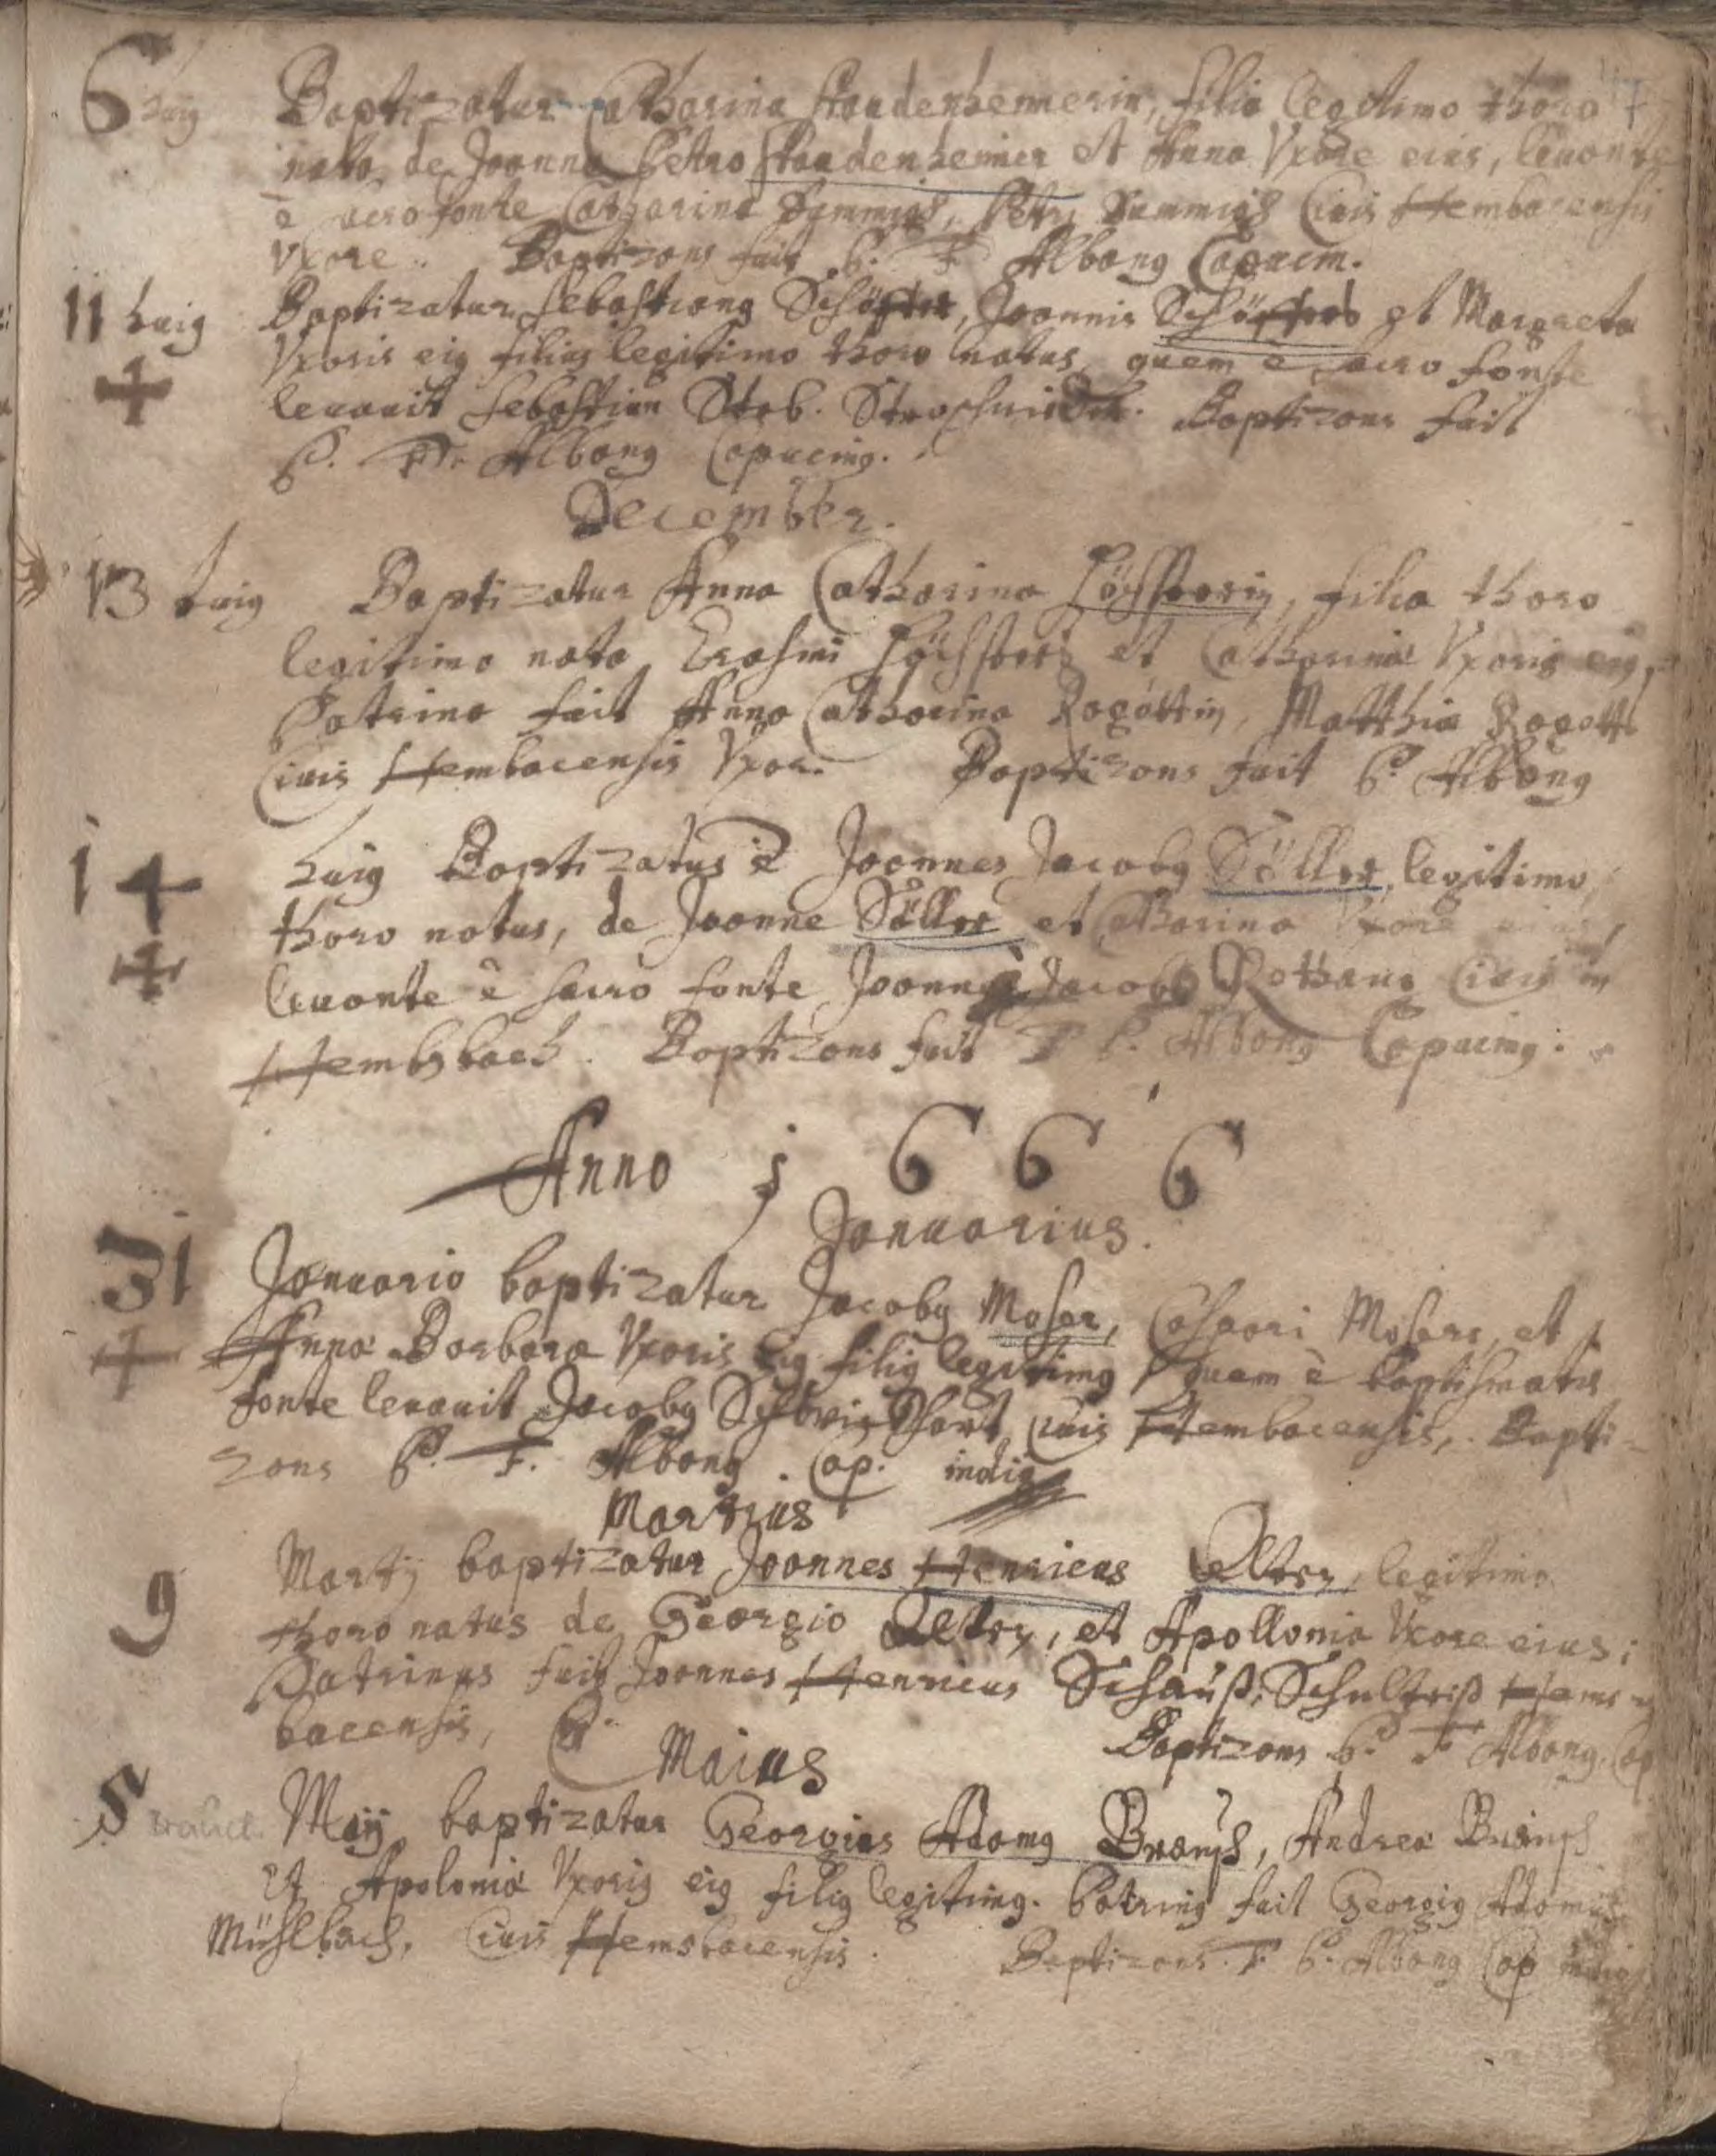 6 huig Baptizatur Catharina Staudenheimerin, filia legitimo thoro
nata de Joanne Petro Staudenheimer et Anna Vxore eius, leuante
è sacro fonte Catharina Dimmigß, Petri Dummigß Ciuis Hembacensis
Vxore. Baptizans fuit P. F. Albang Capucin.
11 huig Baptizatur Sebastiang Schäffer, Joannis Schäffers et Margreta
Vxoris eig filius legitimo thoro natus, quem è sacro fonte
leuauit Sebastian Stab. Baptizans fuit
P. F. Albang Capucing.
December.
13 huig Baptizatur Anna Catharina, filia thoro
legitimo nata Erasmi et Catharinæ Vxoris eig,
Patrina fuit Anna Catharina Rogottin, Matthiæ Rogotts
Ciuis Hembacensis Vxor. Baptizans fuit P. Albang
14 huig Baptizatus è Joannes Jacobg Söller, legitimo
thoro natus, de Joanne Söller et Catharina Vxore eius,
leuante è sacro fonte Joanne Jacobo Rothaug Ciuis in
Hembsbach. Baptizans fuit F. P. Albang Capucing.
Anno 1666
Januarius.
31 Januario baptizatur Jacobg Moser, Caspari Mosers, et
Anna Barbara Vxoris eig filig legitimg quem è baptismatis
fonte leuauit Jacobg ciuis Hembacensis, Bapti-
zans P. F. Albang. Cap. indig
Martius
9 Martij baptizatur Joannes Henricus Velten, legitimo
thoro natus de Georgio Velten, et Apollonia Vxore eius;
Patrinus fuit Joannes Henricus Schauß, Schulteiß Hems
bacensis, Baptizans P. F. Albang. Cap
Maius
5 Maij baptizatur Georgius Adamg Braunß, Andreæ Braunß
et Apoloniæ Vxoris eig filig legitimg. Patring fuit Georgig Adamus
Mühlbach, Ciuis Hemsbacensis. Baptizans F. P. Albang Cap indig